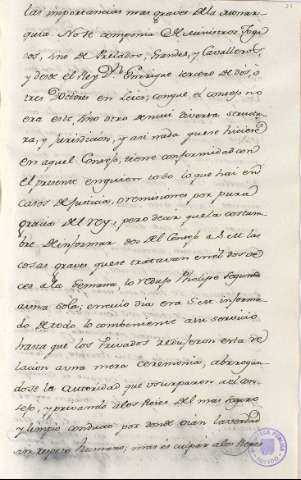 las importancias mas graves de la monar
quia No se componia de ministros Toga
dos, sino de Prelados, Grandes, y Cavalleros,
y desde el Rey Dn. Enrrique tercero de dos, o
tres Doctores en Leies; conque el consejo no
era este, sino otro de muy diversa structu
ra, y jurisdicion, y asi nada que se hiciere
en aquel Consejo, tiene conformidad con
el presente en quien todo lo que hai en
casos de Justicia, o remisiones por pura
gracia del rey, pero decir que la costum
bre de informar dos del Consejo a S.M. las
cosas graves que se tratavan en el dos ve
ces a la semana, lo reduxo Phelipe segundo
a una sola; en cuio dia era S.M. informa
do de todo lo combeniente a su servicio
hasta que los Privados reduxeron esta re
lacion a una mera ceremonia, abrogan
dose la autoridad que usurparon a el con
sejo, y privando a los Reies del mas seguro
y limpio conducto por donde oian la verdad
sin respeto humano, mas es culpar a los Reyes